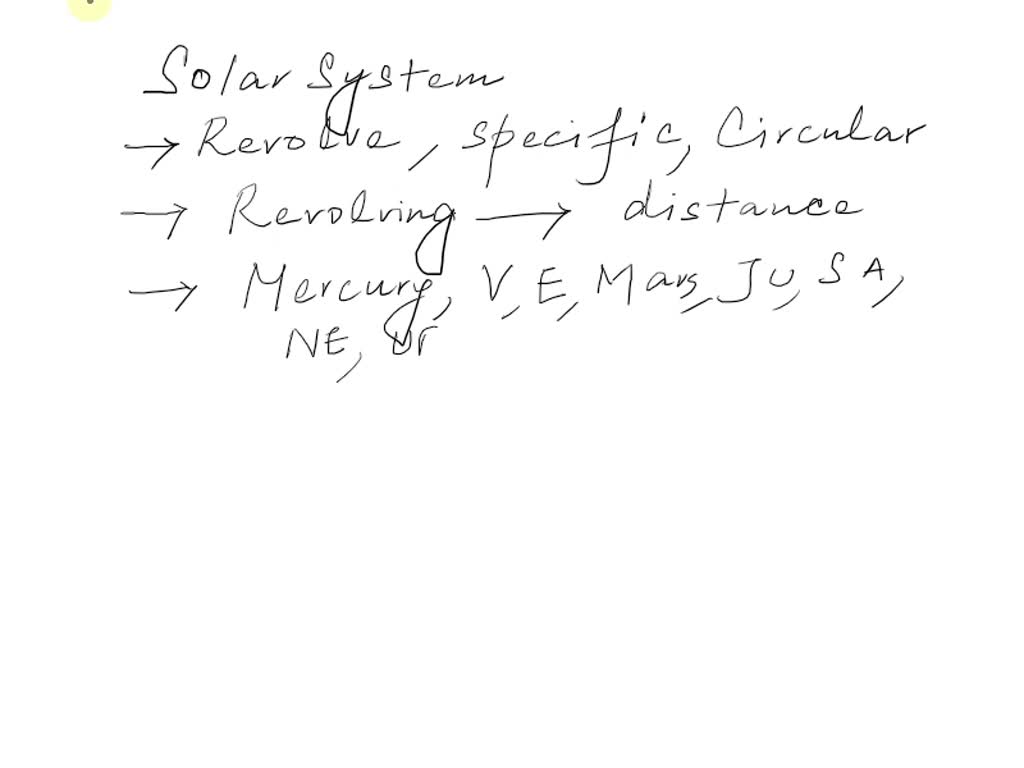 Solar System
→ Revolve, specific, Circular
→ Revolving → distance
→ Mercury, V, E, Mars, JU, SA,
NE, Ur